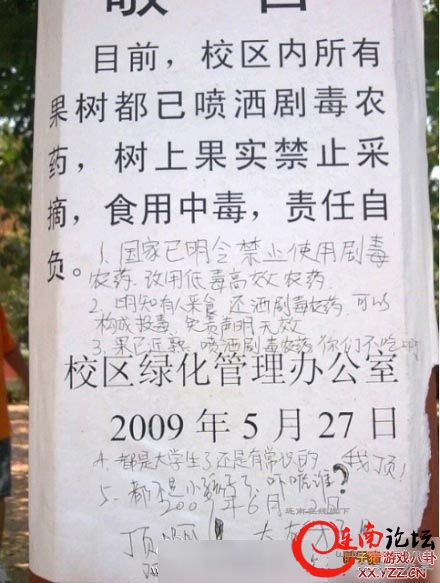 敬告
目前，校区内所有
果树都已喷洒剧毒农
药，树上果实禁止采
摘，食用中毒，责任自
负。
1. 国家已明令禁止使用剧毒
农药. 改用低毒高效农药.
2. 明知有人采食 还洒剧毒农药. 可以
构成投毒. 免责声明无效
3. 果已近熟. 喷洒剧毒农药你们不吃啊
校区绿化管理办公室
2009年5月27日
4. 都是大学生了还是有常识的. 我顶!
5. 都不是小孩子了. 吓唬谁?
2009年6月2日
连南在线阁下
顶啊! 太有才
连南论坛
游戏八卦
XX.YZZ.CN